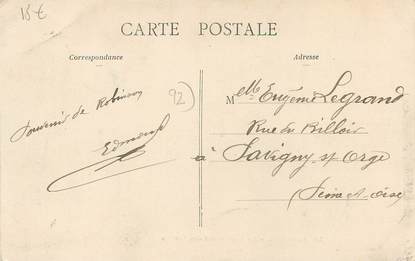 15€
CARTE POSTALE
Correspondance
Adresse
92
Souvenir de Robinson
Melle Eugénie Legrand
Rue du
à Savigny s/ Orge
Seine et Oise